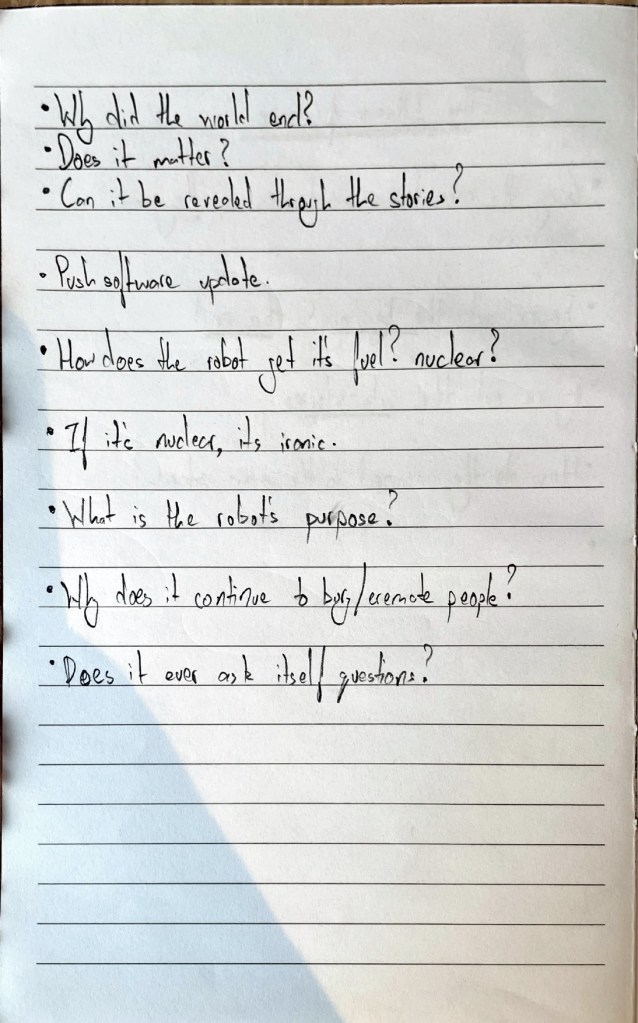 • Why did the world end?
• Does it matter?
• Can it be revealed through the stories?
• Push software update.
• How does the robot get it's fuel? nuclear?
• If it's nuclear, its ironic.
• What is the robot's purpose?
• Why does it continue to bury/cremate people?
• Does it ever ask itself questions?